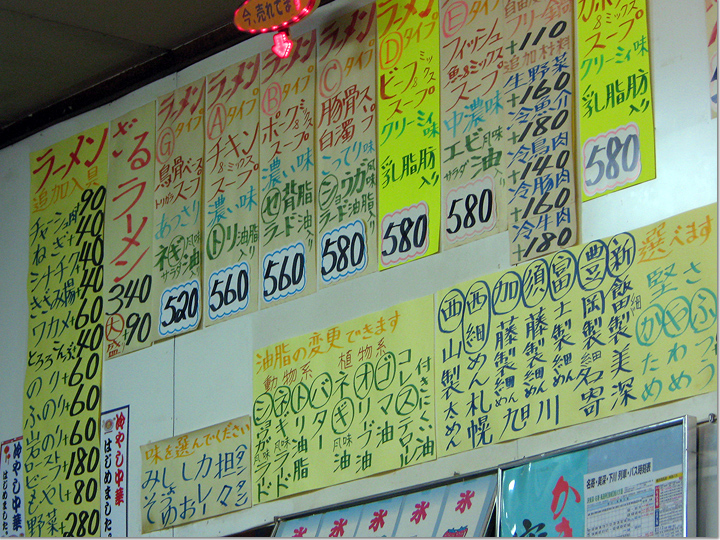 今、売れてま
ラーメン
追加入具
チャーシュ肉 90
ねぎ+ 40
シナチク 40
きざみ揚 40
ワカメ+ 60
とろろこんぶ 40
のり+ 60
ふのり+ 60
岩のり+ 60
ローストビーフ+ 180
もやし+ 80
野菜+ 280
ざるラーメン
340
大盛 90
ラーメン
Gタイプ
鳥骨ベース
トリガラスープ
あっさり
ネギ風味
サラダ油
520
ラーメン
Aタイプ
チキン
&ミックス
スープ
濃い味
トリ油脂入り
560
ラーメン
Bタイプ
ポーク
&ミックス
スープ
濃い味
セ背脂
ラード油入り
560
ラーメン
Cタイプ
豚骨ス
白濁プ
こってり味
シンワガ風味
ラード油脂入り
580
ラーメン
Dタイプ
ビーフ&ミックス
スープ
クリーミィ味
乳脂肪入り
580
Eタイプ
フィッシュ
魚&ミックス
スープ
中濃味
エビ風味
サラダ油
580
+110
追加材料
生野菜
+160
冷魚介
+180
冷鳥肉
+140
冷豚肉
+160
冷牛肉
+180
&ミックス
スープ
クリーミィ味
乳脂肪入り
580
選べます
新飯田製細 美深
豊岡製細 名寄
富士製細めん
須藤製 旭川
加藤製細めん
西細めん 札幌
西山製太めん
堅さ
かため
やわめ
ふつう
油脂の変更できます
動物系
植物系
付きにくい油
コレステロール
オリーブ油
ゴマ油
ネギ風味油
バター
トリ油脂
味を選んでください
みそ
しょうゆ
しお
カレー
担々
タンタン
冷やし中華
はじめました。
冷やし中華
はじめました。
氷
氷
氷
氷
氷
かき
名寄・美深・下川 列車・バス時刻表